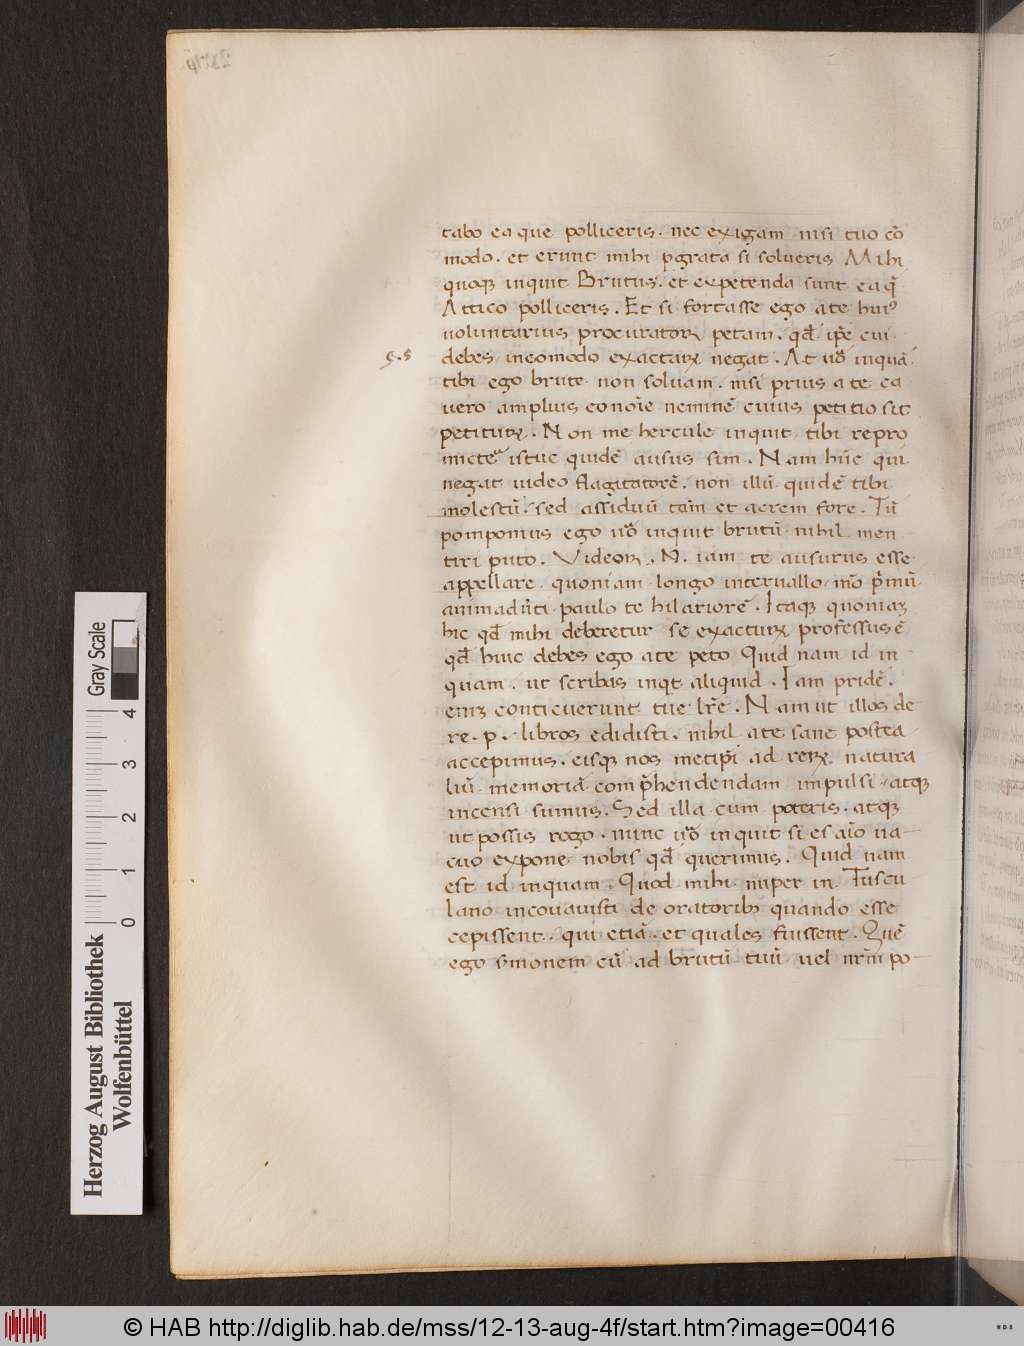 tabo ea que polliceris. nec exigam nisi tuo cō
modo. et erunt mihi pgrata si solueris Mihi
quoqꝫ inquit Brutus. et expetenda sunt ea q̄
Attico polliceris. Et si fortasse ego a te huiꝰ
uoluntarius procuratoꝝ petam. qd̄ ip̄e cui
debes incomodo exactuꝝ negat. At uō inquā
tibi ego brute non soluam. nisi prius a te ca
uero amplius eo noīe neminē cuius petitio sit
petituꝝ. Non me hercule inquit tibi repro
mictere istuc quidē ausus sim. Nam hūc qui
negat uideo flagitatorē. non illū quidē tibi
molestū. sed assiduū tam̄ et acrem fore. Tū
pomponius ego uō inquit brutū nihil men
tiri puto. Videoꝝ. N. iam te ausurus esse
appellare quoniam longo interuallo mō p̄mū
animaduti paulo te hilariorē. Itaqꝫ quoniaꝫ
hic qd̄ mihi deberetur se exactuꝝ professus ē
qd̄ huic debes ego a te peto Quid nam id in
quam. ut scribas inqt aliquid. Iam pridē.
eniꝫ conticuerunt tue lr̄e. Nam ut illos de
re. p. libros edidisti. nihil a te sane postea
accepimus. eisqꝫ nos metip̄i ad reꝝ natura
liū memoriā comp̄hendendam impulsi atqꝫ
incensi sumus. Sed illa cum poteris. atqꝫ
ut possis rogo. nunc uō inquit si es aīo ua-
cuo expone nobis qd̄ querimus. Quid nam
est id inquam. Quod mihi nuper in Tuscu
lano incouauisti de oratoribꝫ quando esse
cepissent. qui etiā. et quales fuissent. Quē
ego smonem cū ad brutū tuū uel nr̄m po-
4
3
2
1
0
Gray Scale
Herzog August Bibliothek
Wolfenbüttel
© HAB http://diglib.hab.de/mss/12-13-aug-4f/start.htm?image=00416